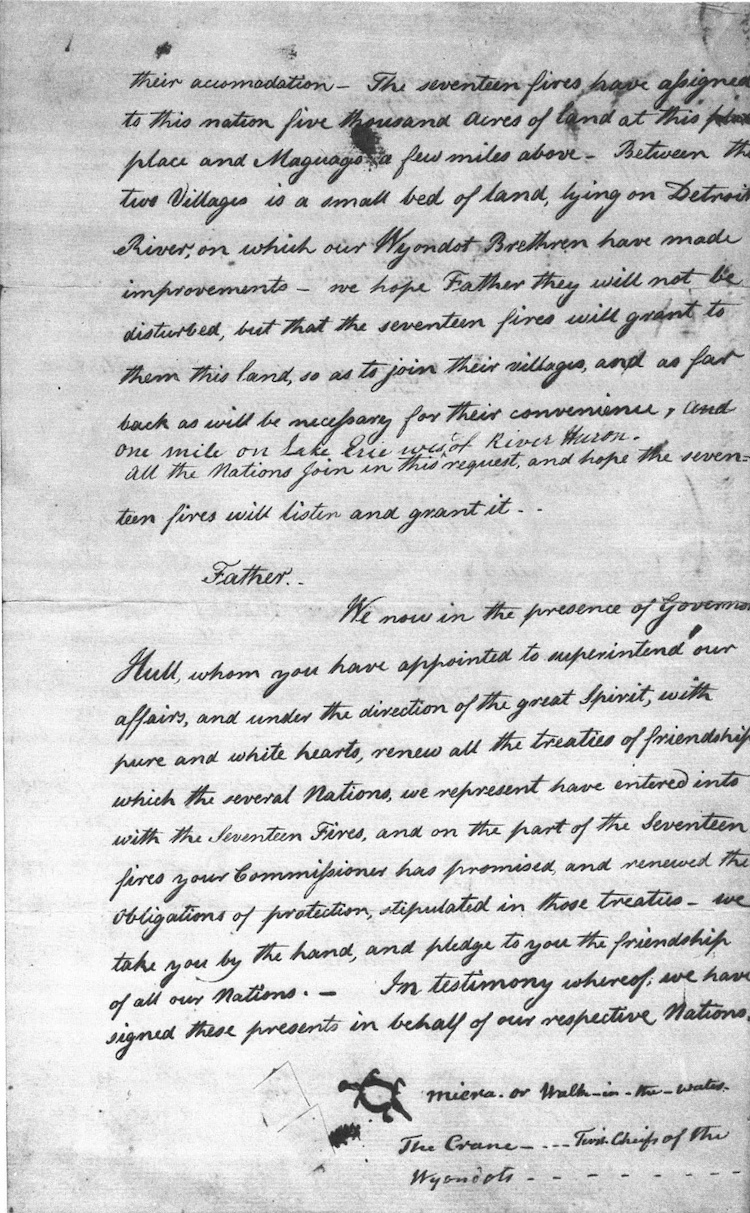 their accomodation – The seventeen fires have assigned
to this nation five thousand acres of land at this
place and Maguago a few miles above – Between the
two Villages is a small bed of land, lying on Detroit
River, on which our Wyondot Brethren have made
improvements – we hope Father they will not be
disturbed, but that the seventeen fires will grant to
them this land, so as to join their villages, and as far
back as will be necessary for their convenience, and
one mile on Lake Erie west of River Huron.
All the Nations join in this request, and hope the seven=
teen fires will listen and grant it - -
Father. -
We now in the presence of Governor
Hull, whom you have appointed to superintend our
affairs, and under the direction of the great Spirit, with
pure and white hearts, renew all the treaties of friendship
which the several Nations, we represent have entered into
with the Seventeen Fires, and on the part of the Seventeen
fires your Commissioner has promised, and renewed the
Obligations of protection, stipulated in those treaties – we
take you by the hand, and pledge to you the friendship
of all our Nations. – In testimony whereof, we have
signed these presents in behalf of our respective Nations.
Miera. or Walk-in-the-water-
The Crane - - - - Two Chiefs of the
Wyondots - - - - - - - -